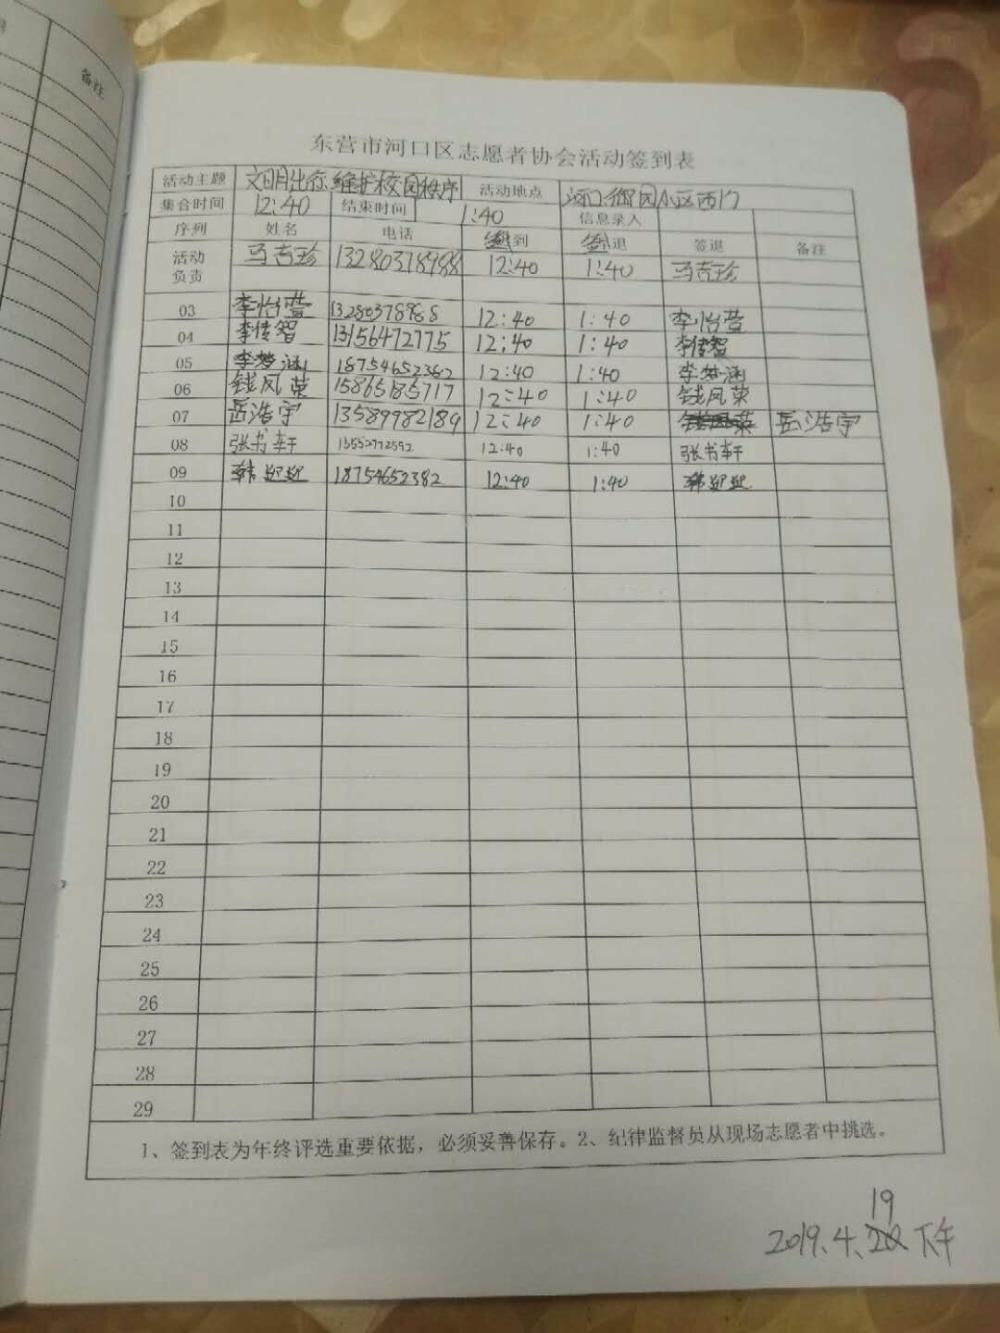 备注
东营市河口区志愿者协会活动签到表
活动主题 文明出行 维护校园秩序 活动地点 河口 御园小区西门
集合时间 12:40 结束时间 1:40 信息录入
序列 姓名 电话 签到 签退 签退 备注
活动负责 马吉珍 13280378988 12:40 1:40 马吉珍
03 李怡萱 13280378988 12:40 1:40 李怡萱
04 李传智 13156472775 12:40 1:40 李传智
05 李梦涵 18754652382 12:40 1:40 李梦涵
06 钱凤荣 15865185717 12:40 1:40 钱凤荣
07 岳浩宇 13589982189 12:40 1:40 岳浩宇
08 张书轩 13552772592 12:40 1:40 张书轩
09 韩迎迎 18754652382 12:40 1:40 韩迎迎
10
11
12
13
14
15
16
17
18
19
20
21
22
23
24
25
26
27
28
29
1、签到表为年终评选重要依据，必须妥善保存。2、纪律监督员从现场志愿者中挑选。
19
2019.4.20 下午